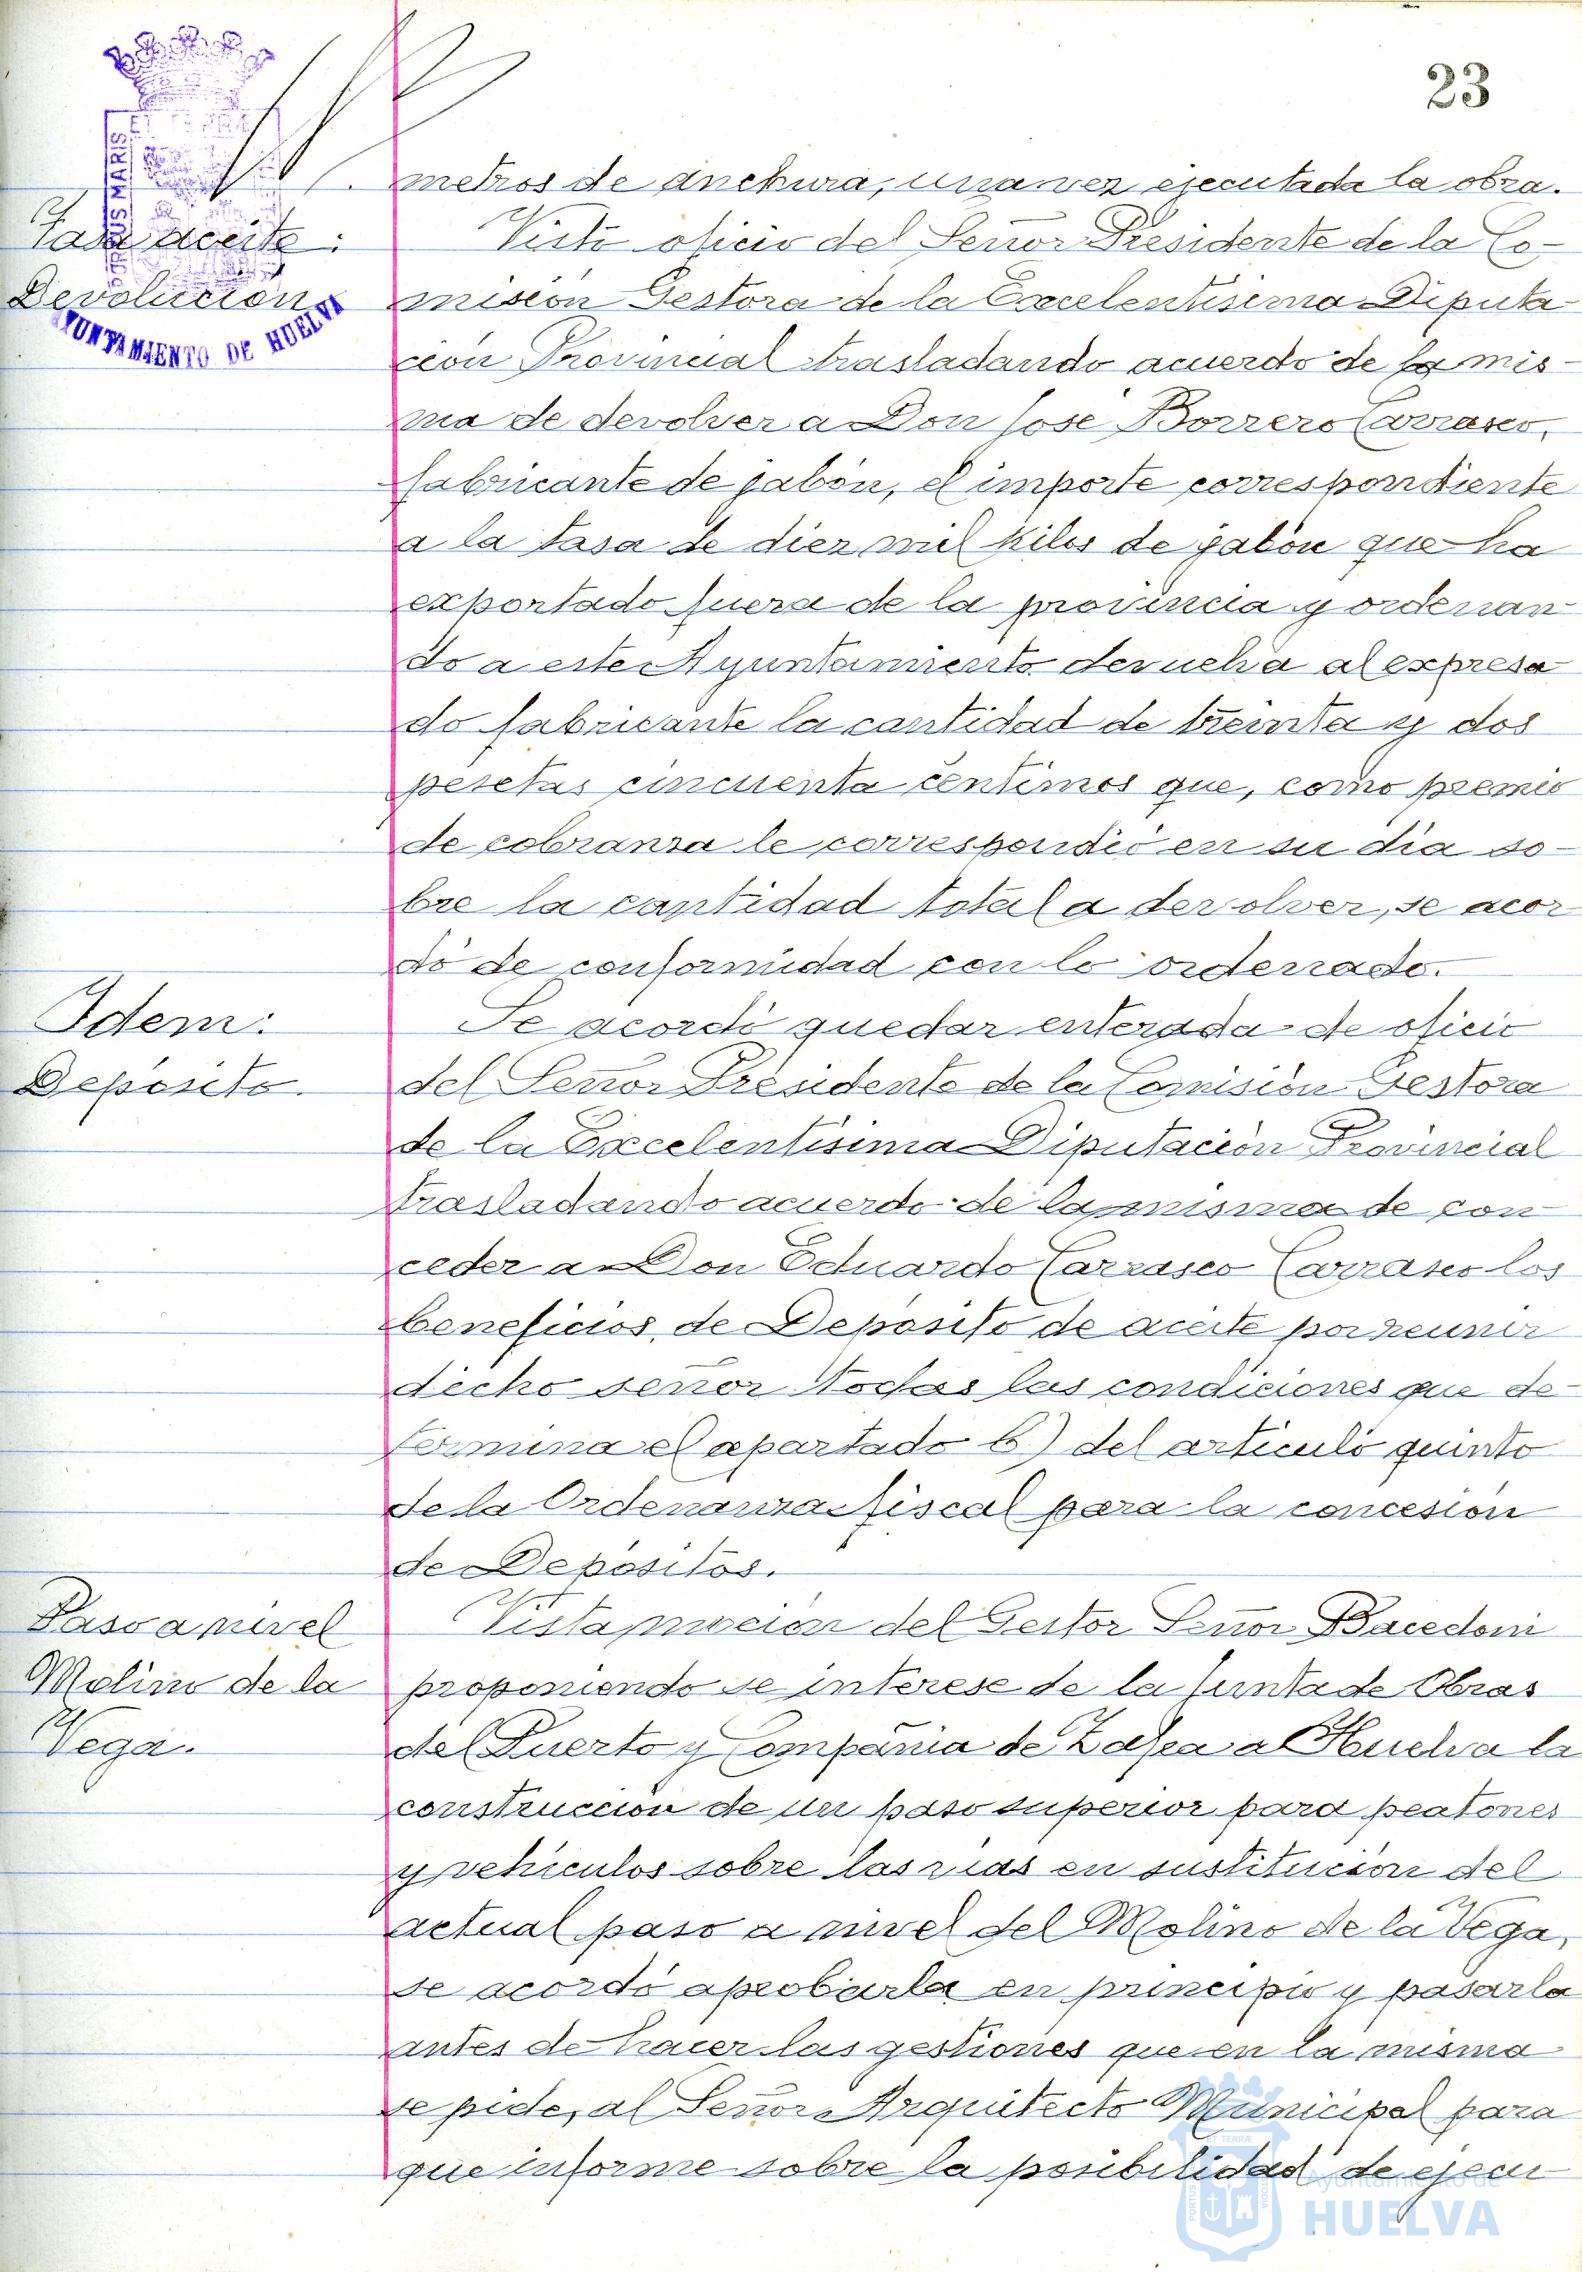 23
metros de anchura, una vez ejecutada la obra.
Tasa aceite:
Devolución
PORTUS MARIS
AYUNTAMIENTO DE HUELVA
Visto oficio del Señor Presidente de la Co-
misión Gestora de la Excelentísima Diputa-
ción Provincial trasladando acuerdo de la mis-
ma de devolver a Don José Borrero Carrasco,
fabricante de jabón, el importe correspondiente
a la tasa de diez mil kilos de jabón que ha
exportado fuera de la provincia y ordenan-
do a este Ayuntamiento devuelva al expresa-
do fabricante la cantidad de treinta y dos
pesetas cincuenta centimos que, como premio
de cobranza le correspondió en su día so-
bre la cantidad total a devolver, se acor-
dó de conformidad con lo ordenado.
Idem:
Depósito.
Se acordó quedar enterada de oficio
del Señor Presidente de la Comisión Gestora
de la Excelentísima Diputación Provincial
trasladando acuerdo de la misma de con-
ceder a Don Eduardo Carrasco Carrasco los
beneficios de Depósito de aceite por reunir
dicho señor todas las condiciones que de-
termina el apartado b) del artículo quinto
de la Ordenanza fiscal para la concesión
de Depósitos.
Paso a nivel
Molino de la
Vega.
Vista moción del Gestor Señor Bacedoni
proponiendo se interese de la Junta de Obras
del Puerto y Compañía de Zafra a Huelva la
construcción de un paso superior para peatones
y vehículos sobre las vías en sustitución del
actual paso a nivel del Molino de la Vega,
se acordó aprobarla en principio y pasarla
antes de hacer las gestiones que en la misma
se pide, al Señor Arquitecto Municipal para
que informe sobre la posibilidad de ejecu-
Ayuntamiento de
HUELVA